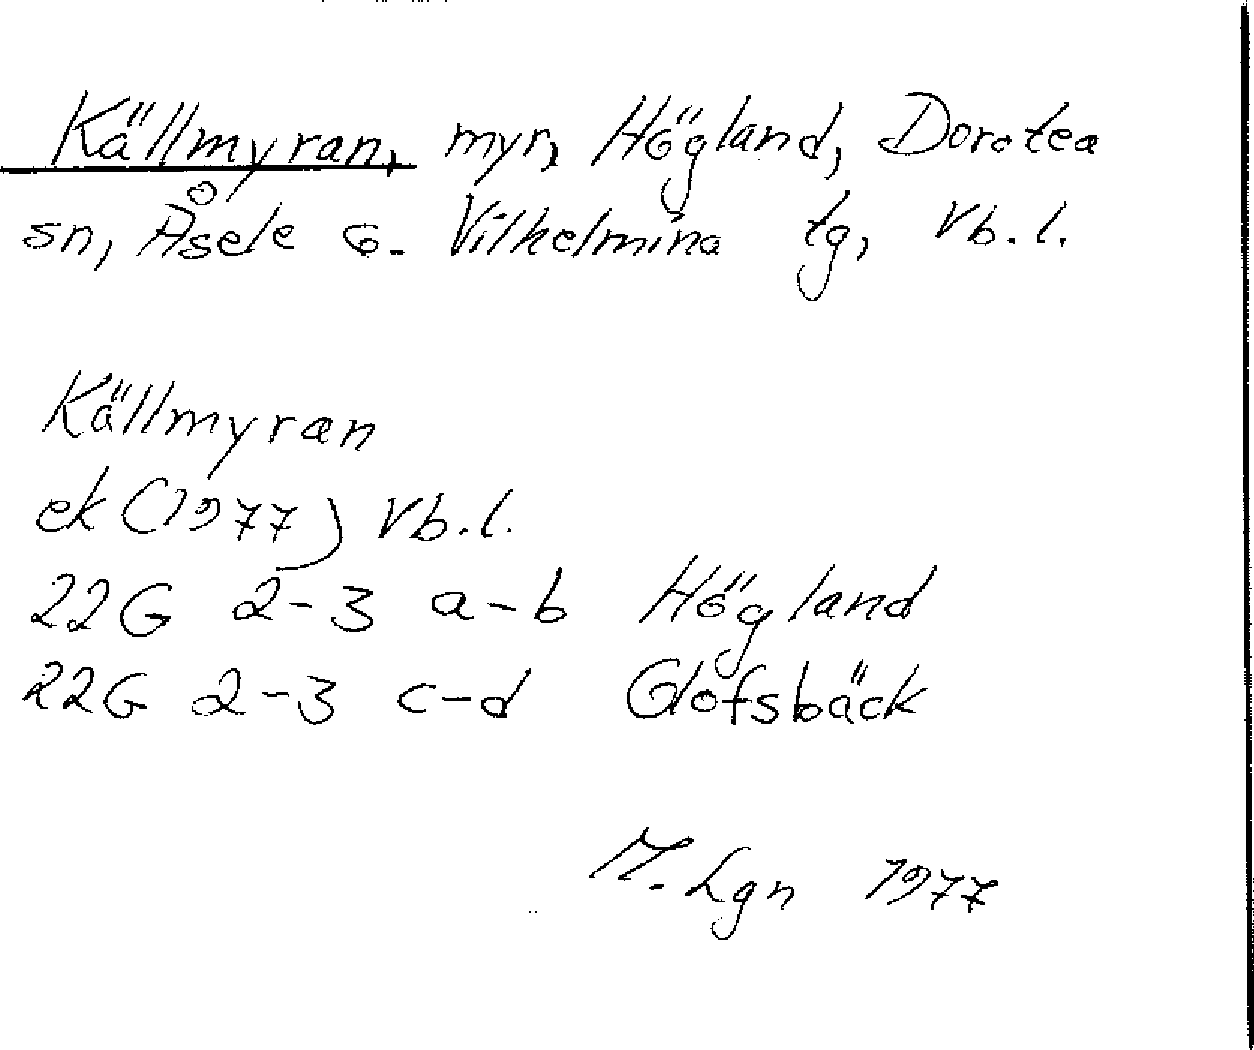 Källmyran, myr, Högland, Dorotea
sn, Åsele o. Vilhelmina tg, Vb.l.
Källmyran
ek (1977) Vb.l.
22G 2-3 a-b Högland
22G 2-3 c-d Glofsbäck
M. Lgn 1977